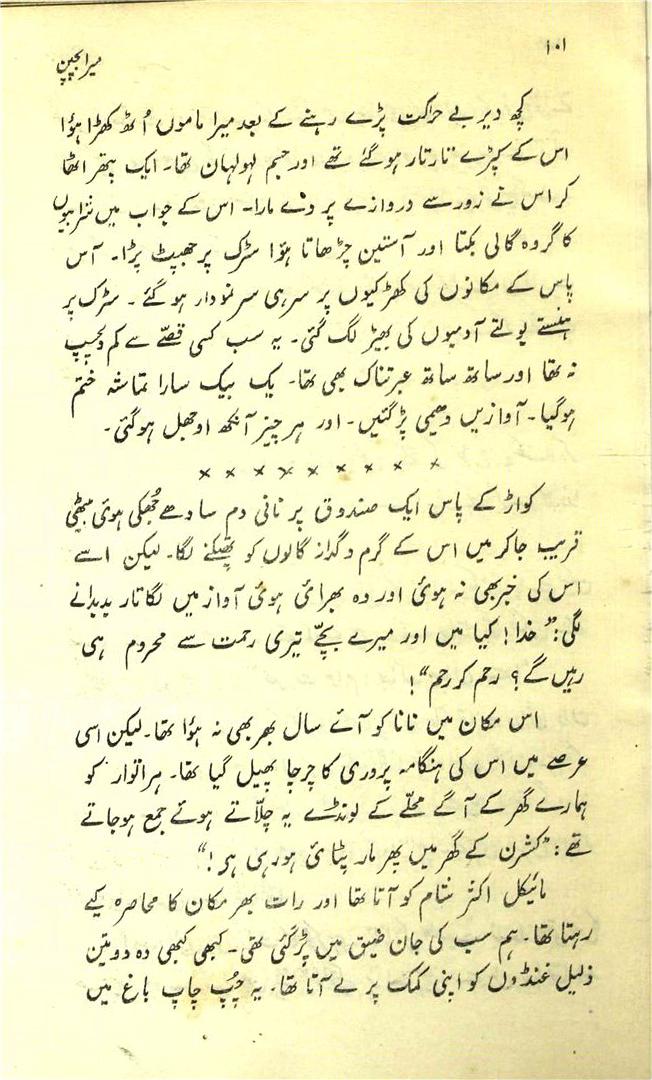 ۱۰۱
میرا بچپن
کچھ دیر بے حرکت پڑے رہنے کے بعد میرا ماموں اُٹھ کھڑا ہؤا
اس کے کپڑے تارتار ہوگئے تھے اور جسم لہولہان تھا۔ ایک پتھر اٹھا
کر اس نے زور سے دروازے پر دے مارا۔ اس کے جواب میں شرابیوں
کا گروہ گالی بکتا اور آستین چڑھاتا ہؤا سڑک پر جھپٹ پڑا۔ آس
پاس کے مکانوں کی کھڑکیوں پر سر ہی سر نمودار ہوگئے ۔ سڑک پر
ہنستے بولتے آدمیوں کی بھیڑ لگ گئی۔ یہ سب کسی قصّے سے کم دلچسپ
نہ تھا اور ساتھ ساتھ عبرتناک بھی تھا۔ یک بیک سارا تماشہ ختم
ہوگیا۔ آوازیں دھیمی پڑگئیں۔ اور ہر چیز آنکھ اوجھل ہوگئی۔
× × × × × × × × ×
کواڑ کے پاس ایک صندوق پر نانی دم سادھے جُھکی ہوئی بیٹھی
قریب جاکر میں اس کے گرم وگداز گالوں کو تھپکنے لگا۔ لیکن اسے
اس کی خبر بھی نہ ہوئی اور وہ بھرائی ہوئی آواز میں لگاتار بدبدانے
لگی: ”خدا! کیا میں اور میرے بچّے تیری رحمت سے محروم ہی
رہیں گے؟ رحم کر رحم“!
اس مکان میں نانا کو آئے سال بھر بھی نہ ہؤا تھا۔ لیکن اسی
عرصے میں اس کی ہنگامہ پروری کا چرچا پھیل گیا تھا۔ ہر اتوار کو
ہمارے گھر کے آگے محلّے کے لونڈے یہ چلّاتے ہوئے جمع ہوجاتے
تھے: ”کشرن کے گھر میں پھر مار پٹائی ہو رہی ہی!“
مائیکل اکثر شام کو آتا تھا اور رات بھر مکان کا محاصرہ کیے
رہتا تھا۔ ہم سب کی جان ضیق میں پڑگئی تھی۔ کبھی کبھی وہ دو تین
ذلیل غنڈوں کو اپنی کمک پر لے آتا تھا۔ یہ چُپ چاپ باغ میں